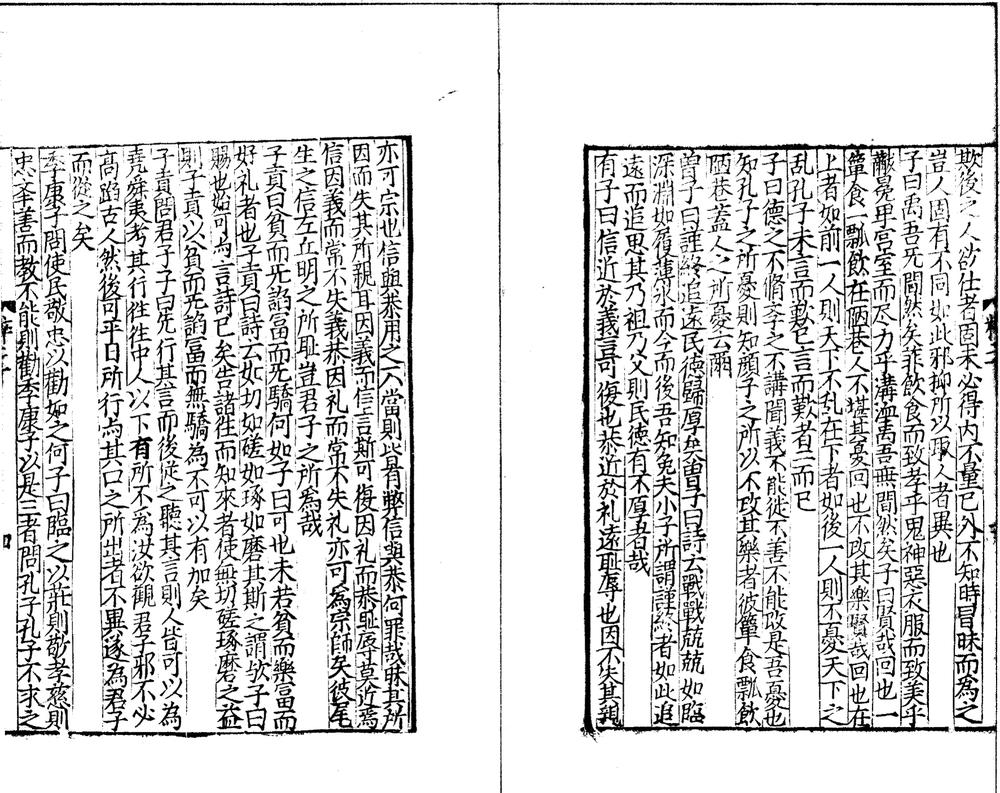 欺後之人欲仕者固未必得内不量己外不知時冒昧而為之
豈人固有不同如此邪抑所以取人者異也
子曰禹吾无間然矣菲飲食而致孝乎鬼神惡衣服而致美乎
黻冕卑宫室而尽力乎溝洫禹吾無間然矣子曰賢哉回也一
簞食一瓢飲在陋巷人不堪其憂回也不改其樂賢哉回也在
上者如前一人則天下不乱在下者如後一人則不憂天下之
乱孔子未言而歎已言而歎者二而已
子曰德之不脩孝之不講聞義不能徙不善不能改是吾憂也
知孔子之所憂則知顔子之所以不改其樂者彼簞食瓢飲
陋巷蓋人之所憂云爾
曾子曰謹終追遠民德歸厚矣曽子曰詩云戰戰兢兢如臨
深淵如履薄氷而今而後吾知免夫小子所謂謹終者如此追
遠而追思其乃祖乃父則民徳有不厚者哉
有子曰信近於義言可復也恭近於礼遠恥辱也因不失其親
亦可宗也信與恭用之不當則皆有弊信與恭何罪哉昧其所
因而失其所親耳因義而信言斯可復因礼而恭恥辱莫近焉
信因義而常不失義恭因礼而常不失礼亦可為宗師矣彼尾
生之信左丘明之所恥豈君子之所為哉
子貢曰貧而无諂冨而无驕何如子曰可也未若貧而樂冨而
好礼者也子貢曰詩云如切如磋如琢如磨其斯之謂欤子曰
賜也始可与言詩已矣告諸徃而知來者使無切磋琢磨之益
則子貢以貧而无諂冨而無驕為不可以有加矣
子貢問君子子曰先行其言而後從之聽其言則人皆可以為
堯舜夷考其行徃徃中人以下有所不為汝欲觀君子邪不必
髙蹈古人然後可平日所行与其口之所出者不異遂為君子
而從之矣
季康子問使民敬忠以勸如之何子曰臨之以莊則敬孝慈則
忠举善而教不能則勸季康子以是三者問孔子孔子不求之